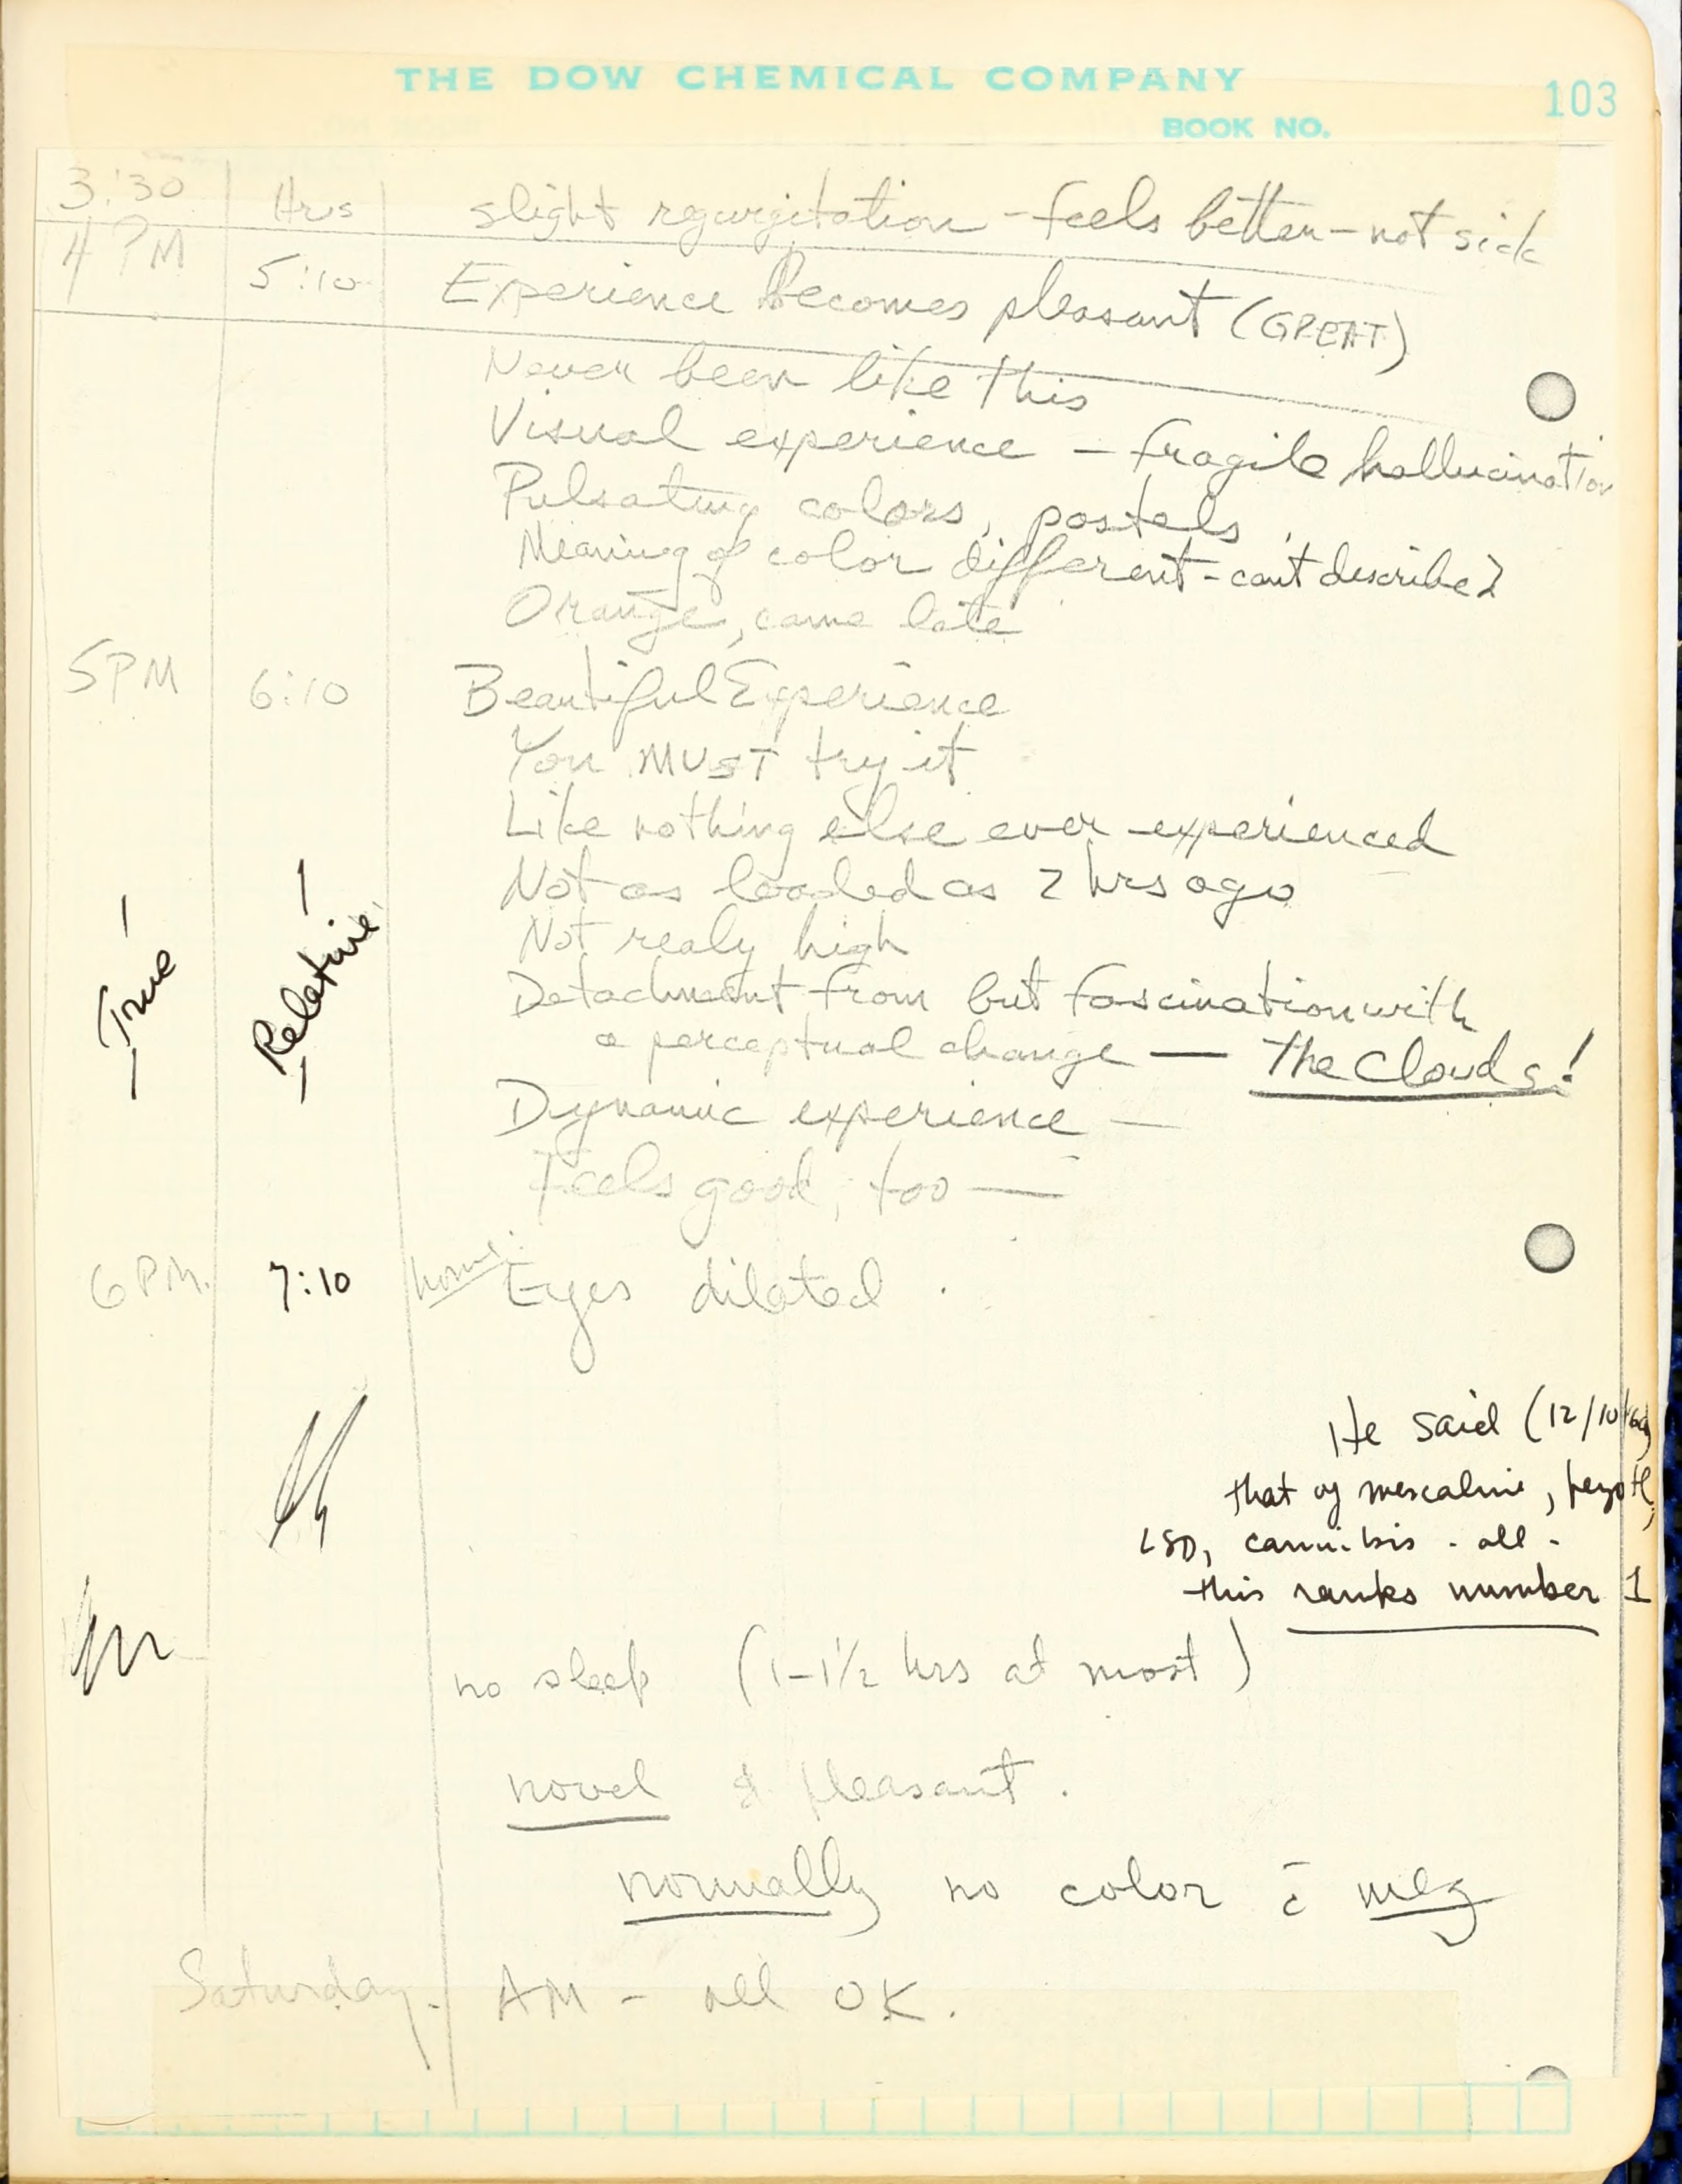 THE DOW CHEMICAL COMPANY
103
BOOK NO.
3:30 Hrs slight regurgitation - feels better - not sick
4 PM 5:10 Experience becomes pleasant (GREAT)
Never been like this
Visual experience - fragile hallucination
Pulsating colors, pastels,
Meaning of color different - cant describe
Orange, came late
5PM 6:10 Beautiful Experience
You MUST try it
Like nothing else ever experienced
Not as loaded as 2 hrs ago
Not realy high
Detachment from but fascination with
a perceptual change — The Clouds!
Dynamic experience —
Feels good, too —
- True -
- Relative -
6 PM. 7:10 home: Eyes dilated.
He said (12/10/60)
that of mescaline, peyotl,
LSD, cannibis - all -
this ranks number 1
no sleep (1-1½ hrs at most)
novel & pleasant.
normally no color c̄
Saturday - AM - all OK.